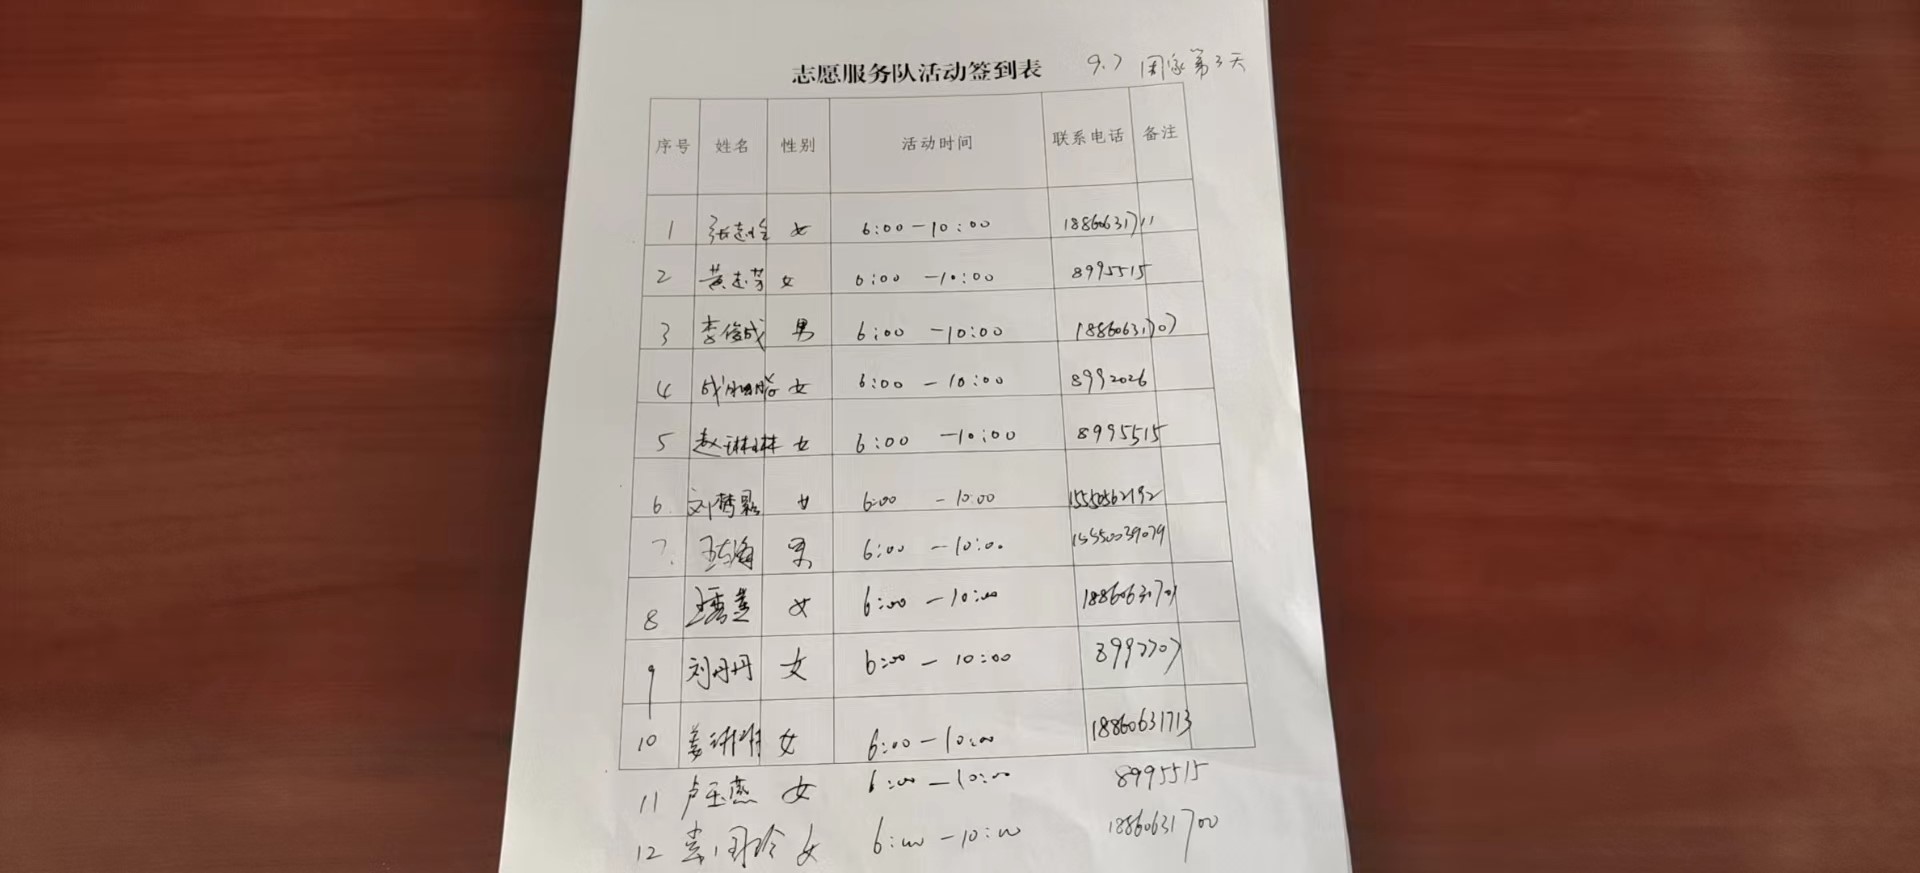 志愿服务队活动签到表 9.7 国家第3天
序号 姓名 性别 活动时间 联系电话 备注
1 张志玲 女 6:00-10:00 18860631711
2 黄志芳 女 6:00-10:00 8995515
3 李俊成 男 6:00-10:00 18860631707
4 女 6:00-10:00 8992026
5 赵琳琳 女 6:00-10:00 8995515
6 刘梦 女 6:00-10:00 15550562192
7 男 6:00-10:00 15550039079
8 王秀英 女 6:00-10:00 18860631701
9 刘丹丹 女 6:00-10:00 8992707
10 姜琳琳 女 6:00-10:00 18860631713
11 卢玉燕 女 6:00-10:00 8995515
12 女 6:00-10:00 18860631700